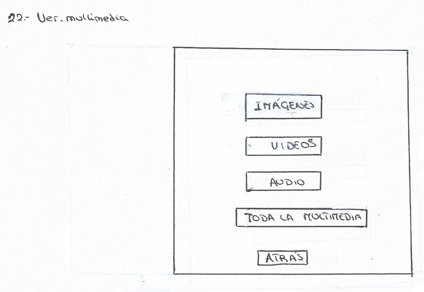 22.- Ver multimedia
IMÁGENES
VIDEOS
AUDIO
TODA LA MULTIMEDIA
ATRÁS